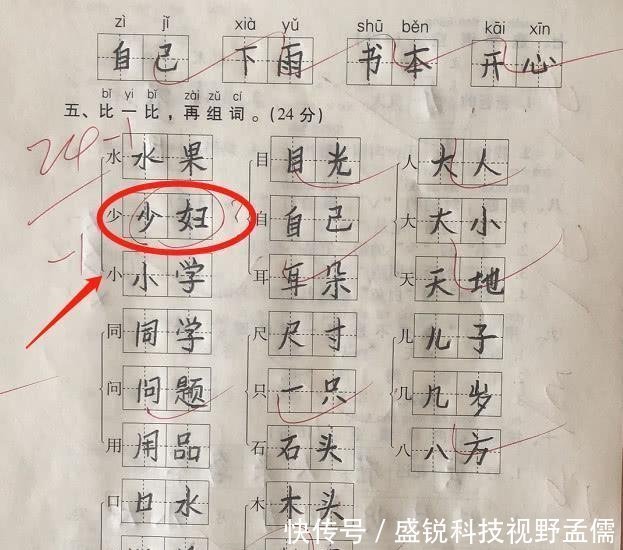 zì jǐ xià yǔ shū běn kāi xīn
自己 下雨 书本 开心
bǐ yi bǐ zài zǔ cí
五、比一比，再组词。(24分)
24-1
水 水果 目 目光 人 大人
少 少妇 ? 自 自己 大 大小
-1
小 小学 耳 耳朵 天 天地
同 同学 尺 尺寸 儿 儿子
问 问题 只 一只 几 几岁
用 用品 石 石头 八 八方
口 口水 木 木头
快传号／盛锐科技视野孟儒